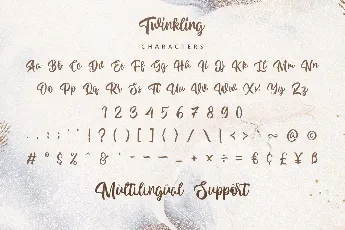 Twinkling
CHARACTERS
Aa Bb Cc Dd Ee Ff Gg Hh Ii Jj Kk Ll Mm Nn
Oo Pp Qq Rr Ss Tt Uu Vv Ww Xx Yy Zz
1 2 3 4 5 6 7 8 9 0
. , : ; ! ? ( ) [ ] { } / \ | < > ~ @ ©
# ° $ % ^ & _ + × ÷ = € ¢ £ ¥
Multilingual Support